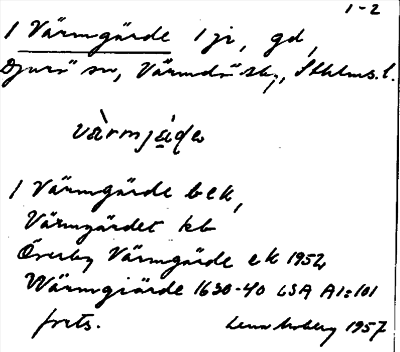 1-2
1 Värmgärde 1 jr, gd,
Djurö sn, Värmdö skg, Sthlms l.
värmjäḍe
1 Värmgärde bek,
Värmgärdet kb
Överby Värmgärde ek 1952
Wärmgiärde 1630-40 LSA A1:101
forts. Lena Moberg 1957